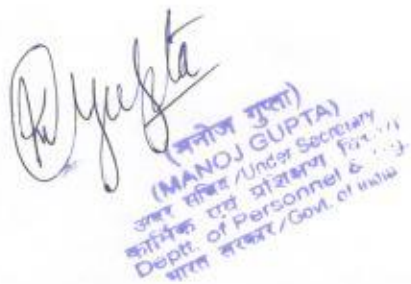 Gupta
(मनोज गुप्ता)
(MANOJ GUPTA)
अवर सचिव/Under Secretary
कार्मिक एवं प्रशिक्षण
Deptt. of Personnel &
भारत सरकार/Govt. of India